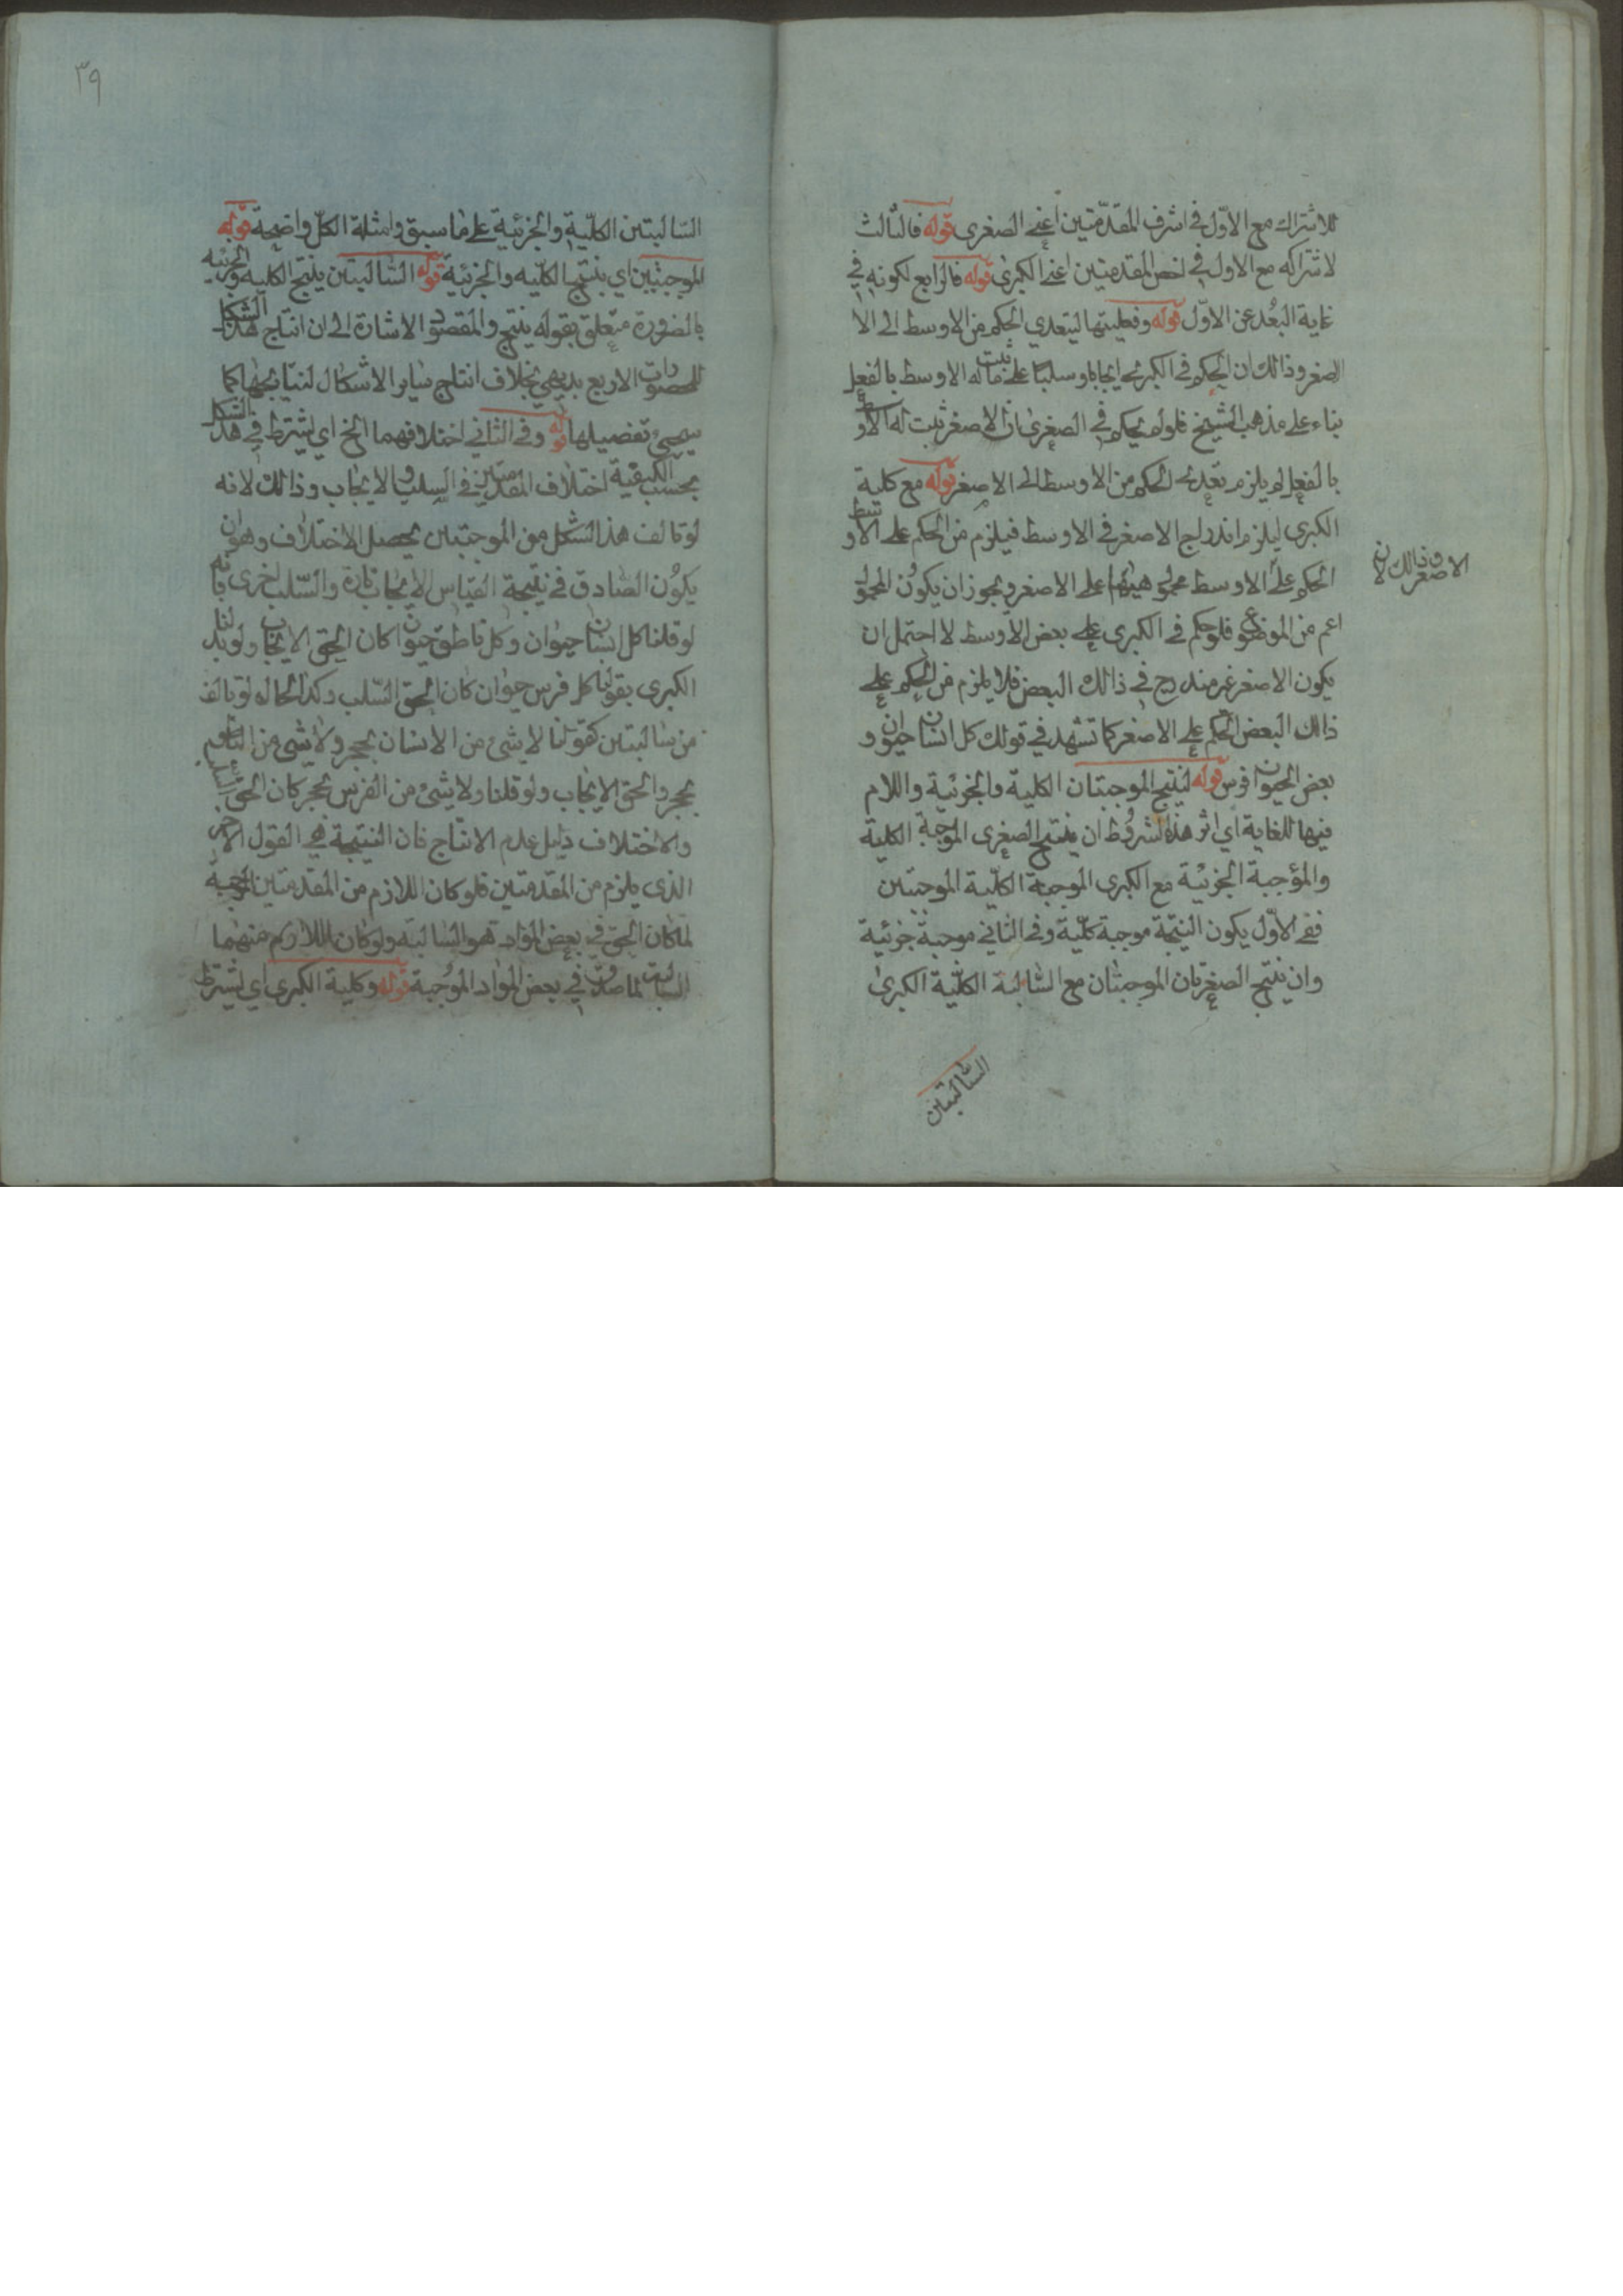 للاشتراك مع الاوّل في اشرف المقدّمتين اعني الصغرى قوله فالثالث
لاشتراكه مع الاول في اخص المقدمتين اعني الكبرى قوله فالرابع لكونه في
غاية البُعد عن الاوّل قوله وفعليتها ليتعدي الحكم من الاوسط الى الا
الصغر وذالك ان الحكم في الكبرى ايجابا وسلبا على ما ثبت له الاوسط بالفعل
بناء على مذهب الشيخ فلو لم يحكم في الصغرى بان الاصغر ثبت له الاوسط
بالفعل لم يلزم تعدي الحكم من الاوسط الى الاصغر قوله مع كلية
الكبرى ليلزم اندراج الاصغر في الاوسط فيلزم من الحكم على الاوسط
الحكم على الاوسط محمول هيهنا على الاصغر ويجوز ان يكون المحمول
الاصغر وذالك لان
اعم من الموضوع فلو حكم في الكبرى على بعض الاوسط لاحتمل ان
يكون الاصغر غير مندرج في ذالك البعض فلا يلزم من الحكم على
ذالك البعض الحكم على الاصغر كما تشهد في قولك كل انسان حيوان و
بعض الحيوان فرس قوله لينتج الموجبتان الكلية والجزئية واللام
فيها للغاية اي اثر هذه الشروط ان ينتج الصغرى الموجبة الكلية
والمؤجبة الجزئية مع الكبرى الموجبة الكلّية الموجبتين
ففي الاوّل يكون النتيجة موجبة كلّية وفي الثاني موجبة جزئية
وان ينتج الصغريان الموجبتان مع السالبة الكلّية الكبرى
السّالبتين
٣٩
السّالبتين الكلّية والجزئية على ما سبق وامثلة الكلّ واضحة قوله
الموجبتين اي ينتج الكلّيه والجزئية قوله السّالبتين ينتج الكليه والجزئيه
بالضرورة متعلق بقوله ينتج والمقصود الاشارة الى ان انتاج هذا الشكل
للمحصورات الاربع بديهي بخلاف انتاج ساير الاشكال لنتايجها كما
سيجيئ تفصيلها قوله وفي الثاني اختلافهما الخ اي يشترط في هذا الشكل
بحسب الكيفية اختلاف المقدمتين في السلب والايجاب وذالك لانه
لو تالف هذا الشكل من الموجبتين يحصل الاختلاف وهو ان
يكون الصّادق في نتيجة القياس الايجاب تارة والسّلب اخرى فانه
لو قلنا كل انسان حيوان وكل ناطق حيوان كان الحق الايجاب ولو بدلنا
الكبرى بقولنا كل فرس حيوان كان الحق السّلب وكذا الحال لو تالف
من سالبتين كقولنا لا شيئ من الانسان بحجر ولا شيئ من الناطق
بحجر والحق الايجاب ولو قلنا ولا شيئ من الفرس بحجر كان الحق السلب
والاختلاف دليل عدم الانتاج فان النتيجة هي القول الاخر
الذى يلزم من المقدمتين فلو كان اللازم من المقدمتين الموجبة
لما كان الحق في بعض المواد هو السّالبة ولو كان اللازم منهما
السالبة لما صدق في بعض المواد المُوجبة قوله وكلية الكبرى اي يشترط